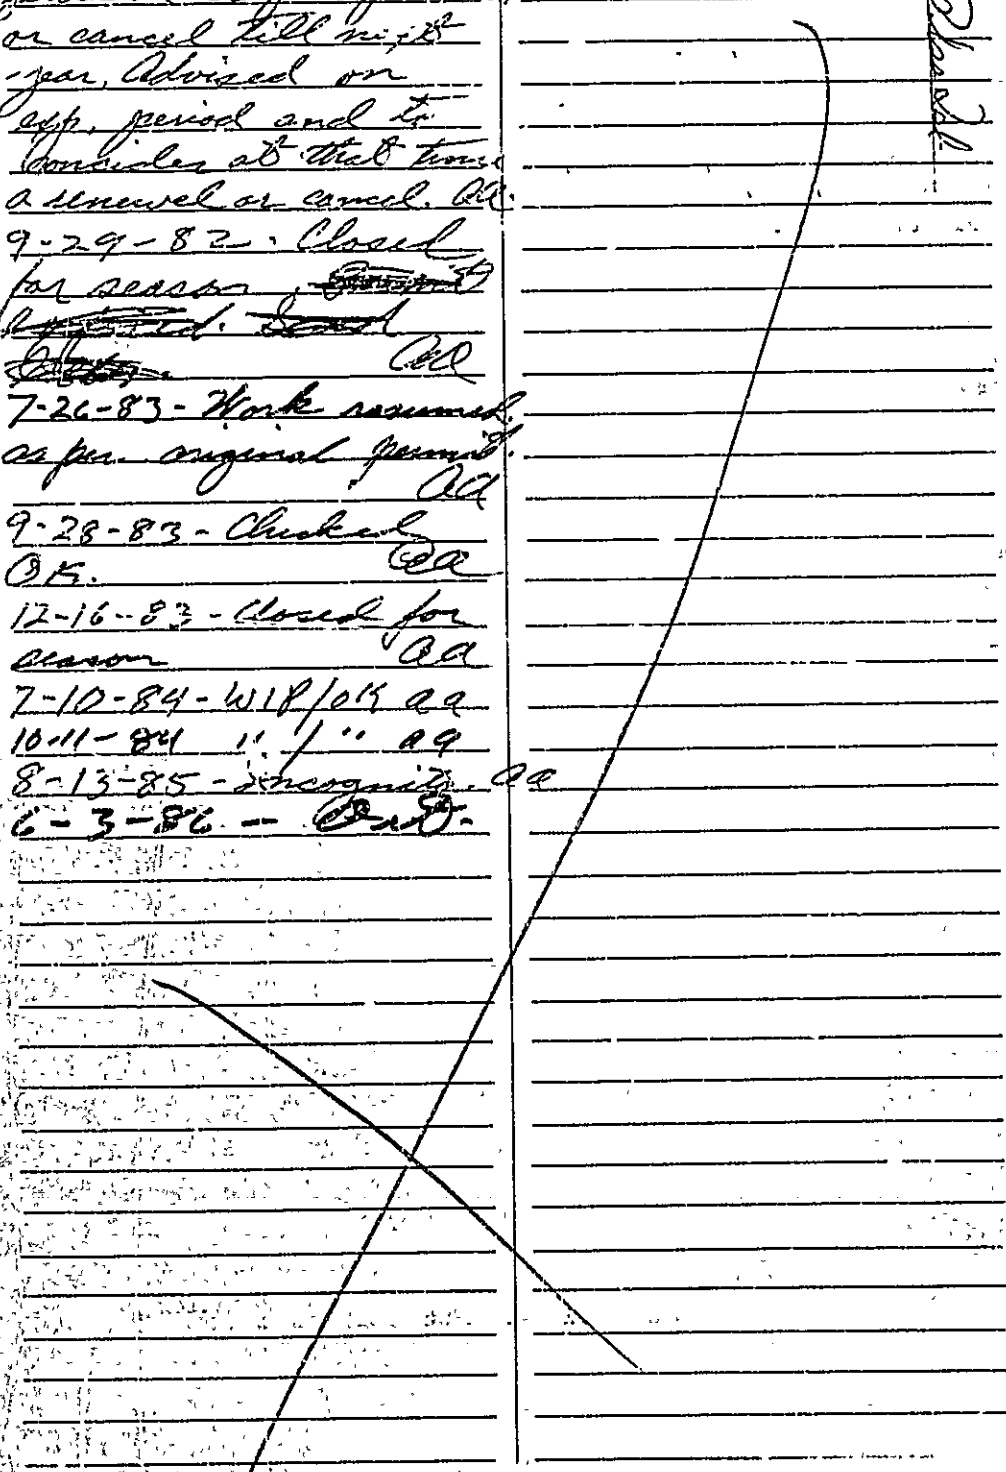 or cancel till next
year. Advised on
exp. period and to
consider at that time
a renewel or cancel. aa.
9-29-82. Closed
for season
aa
7-26-83- Work resumed
as per. original permit.
aa
9-28-83- Checked
OK. aa
12-16-83-Closed for
season aa
7-10-84-WIP/OK aa
10-11-84 " / " aa
8-13-85-Incognito. aa
6-3-86 --